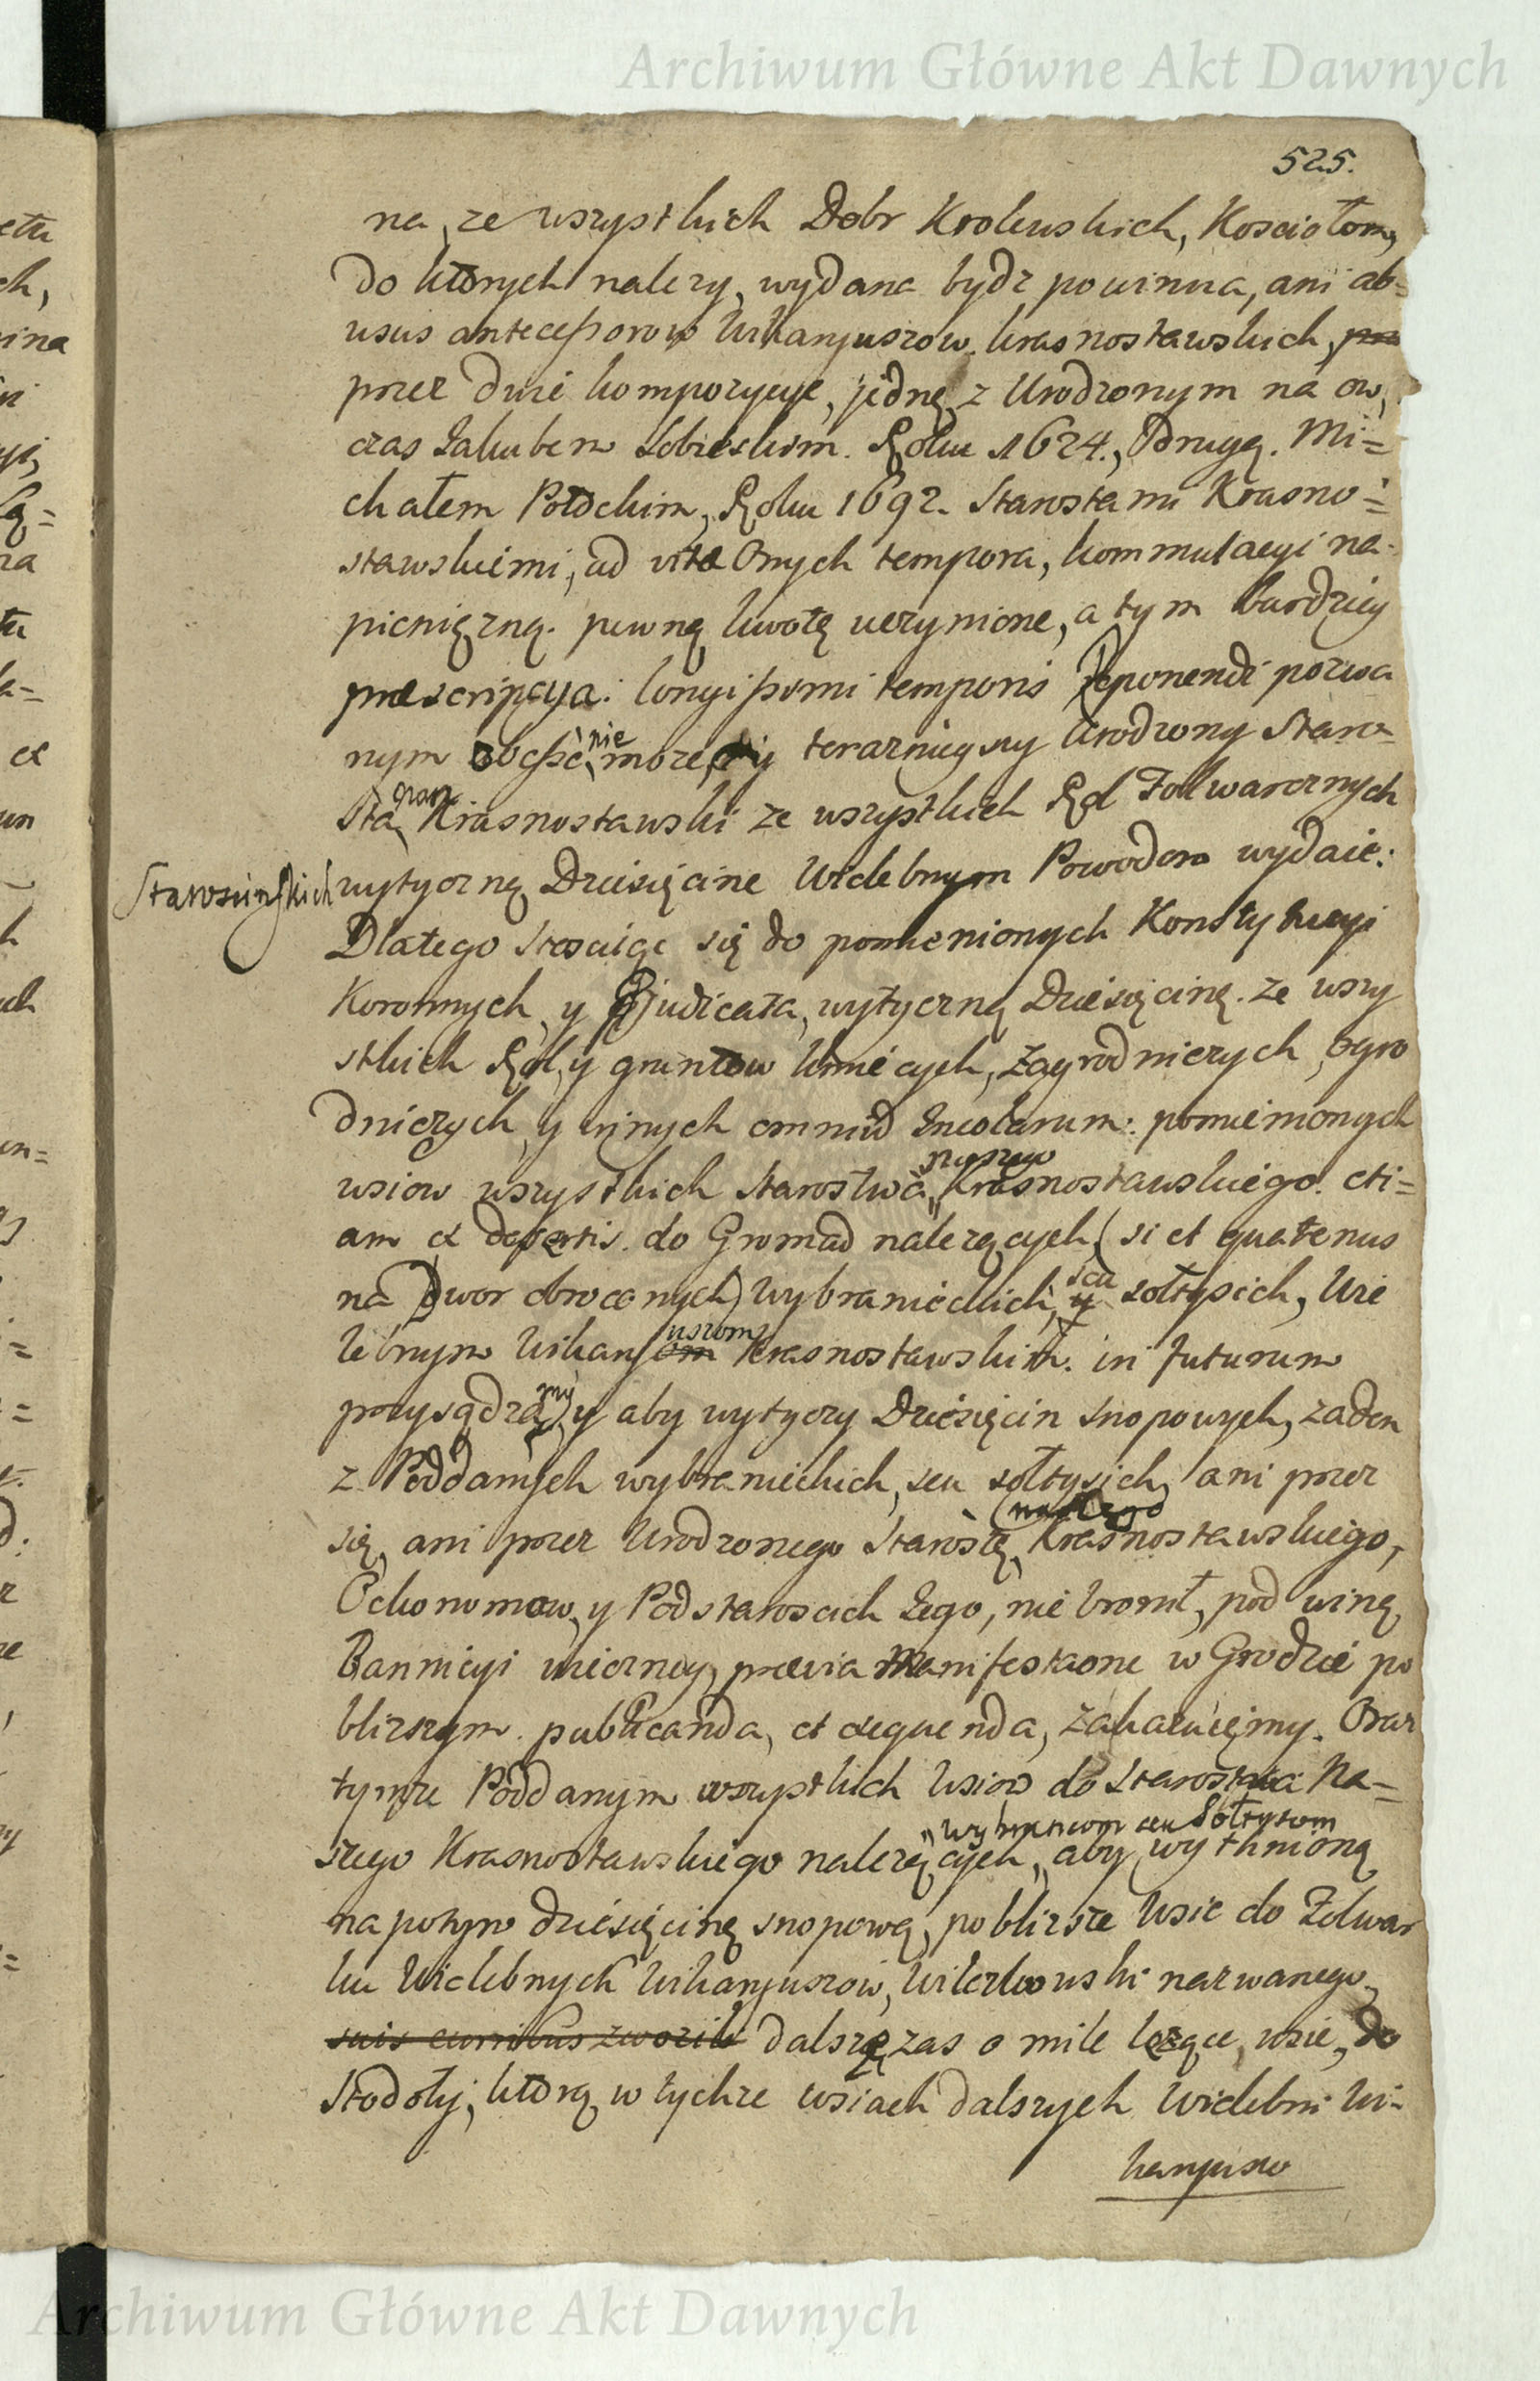 Archiwum Główne Akt Dawnych
525.
na, ze wszystkich Dobr Krolewskich, Kosciołom,
do ktorych nalezy, wydana bydz powinna, ani ab=
usus antecessorow Wikaryuszow krasnostawskich,
przez dwie kompozycye, jednę z Urodzonym na ow,
czas Jakubem Sobieskim Roku 1624., Drugą. Mi=
chałem Potockim, Roku 1692. Starostami Krasno=
stawskiemi, ad vitae Onych tempora, kommutacyi na
pieniężną pewną kwotę uczynione, a tym bardziey
praescripcya longissimi temporis deponendi pozwa
nym nie moze, terazniejszy Urodzony Staro
sta Krasnostawski ze wszystkich Rol Folwarcznych
Starościńskich wytyczną Dziesięcine Wielebnym Powodom wydaie:
Dlatego stosuiąc się do pomienionych Konstytucyi
Koronnych, y judicata, wytyczną Dziesięcinę ze wszy
stkich Rol, y gruntow kmiecych, Zagrodniczych, ogro
dniczych, y innych omnium Incolarum pomienionych
naszego
wsiow wszystkich Starostwa Krasnostawskiego. eti=
am et desertis do Gromad nalezących (si et quatenus
na Dwor obroconych) wybranieckich, seu sołtysich, Wie
lebnym Wikaryuszom Krasnostawskim in futurum
przysądzamy, y aby wytyczy Dziesięcin snopowych, zaden
z Poddanych wybranieckich, seu sołtysich, ani przez
naszego
się, ani przez Urodzonego Starostę Krasnostawskiego,
Oekonomow, y Podstaroscich Jego, nie bronił, pod winą
Bannicyi wieczney, praevia Manifestatione w Grodzie po
blizszym publicanda, et exequenda, zakazuięmy. Oraz
tymze Poddanym wszystkich Wsiow do Starostwa Na=
wybrancom seu Sołtysom
szego Krasnostawskiego nalezących, aby wytknioną
napotym dziesięcinę snopową, poblizsze Wsie do Folwar
ku Wielebnych Wikaryuszow, nazwanego,
suis curribus zwozili dalszę zas o mile lezące, wsie, do
Stodoły, ktorą w tychze wsiach dalszych Wielebni Wi-
karyusze
Archiwum Główne Akt Dawnych